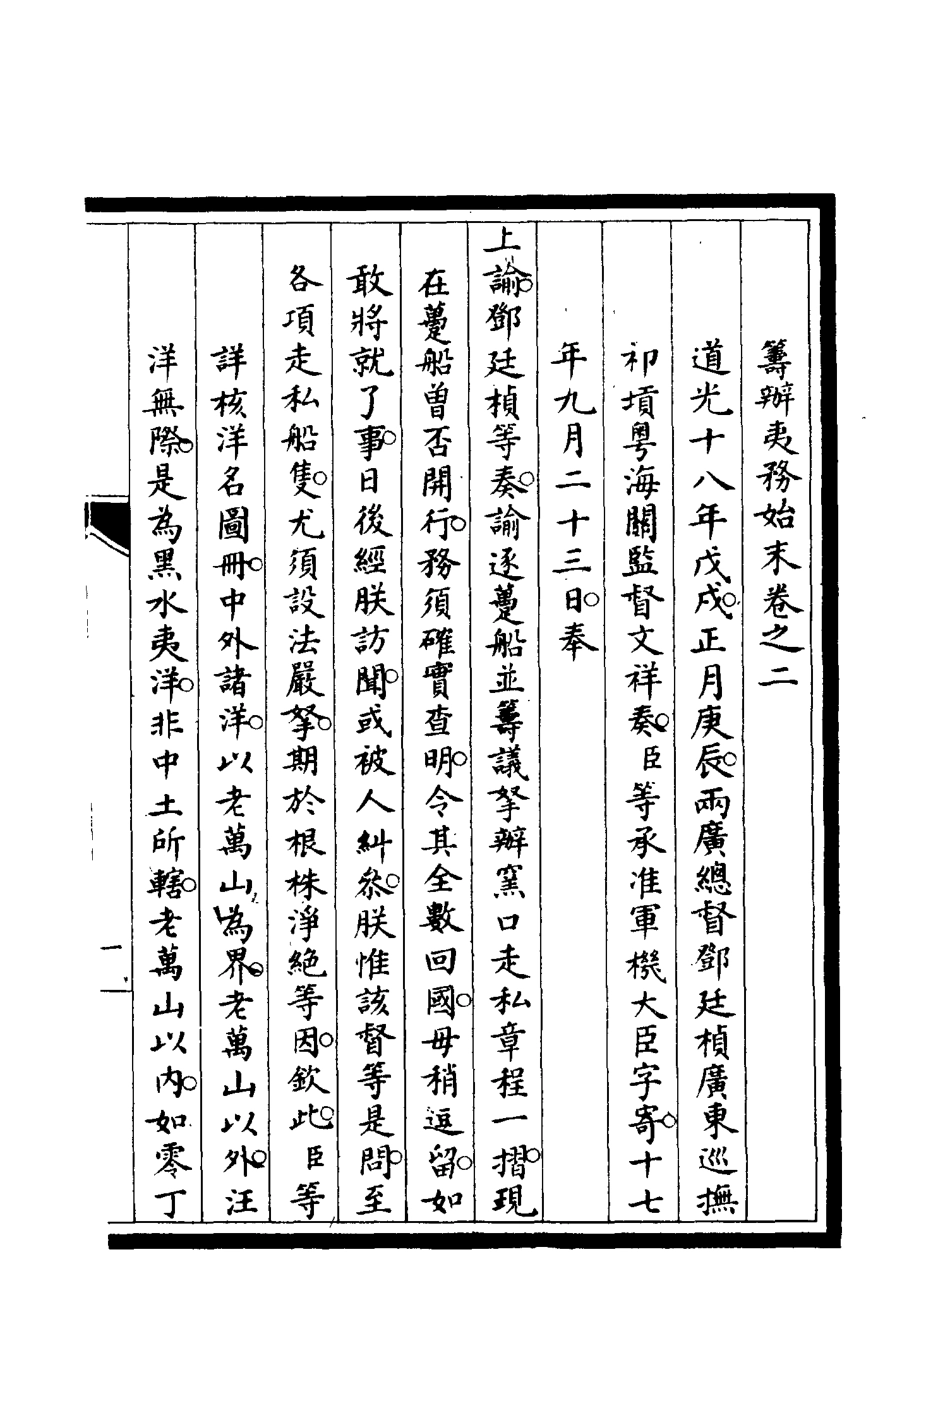 籌辦夷務始末卷之二
道光十八年戊戌。正月庚辰。兩廣總督鄧廷楨廣東巡撫
祁𡎴粵海關監督文祥奏。臣等承准軍機大臣字寄。十七
年九月二十三日。奉
上諭。鄧廷楨等奏。諭逐躉船並籌議拏辦窰口走私章程一摺。現
在躉船曾否開行。務須確實查明。令其全數回國。毋稍逗留。如
敢將就了事。日後經朕訪聞。或被人糾叅。朕惟該督等是問。至
各項走私船隻。尤須設法嚴拏。期於根株淨絕等因。欽此。臣等
詳核洋名圖冊。中外諸洋。以老萬山為界。老萬山以外。汪
洋無際。是為黑水夷洋。非中土所轄。老萬山以內。如零丁
一